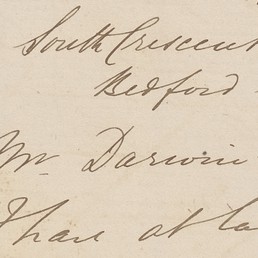 South Crescent
Bedford
Mr Darwin
I have at